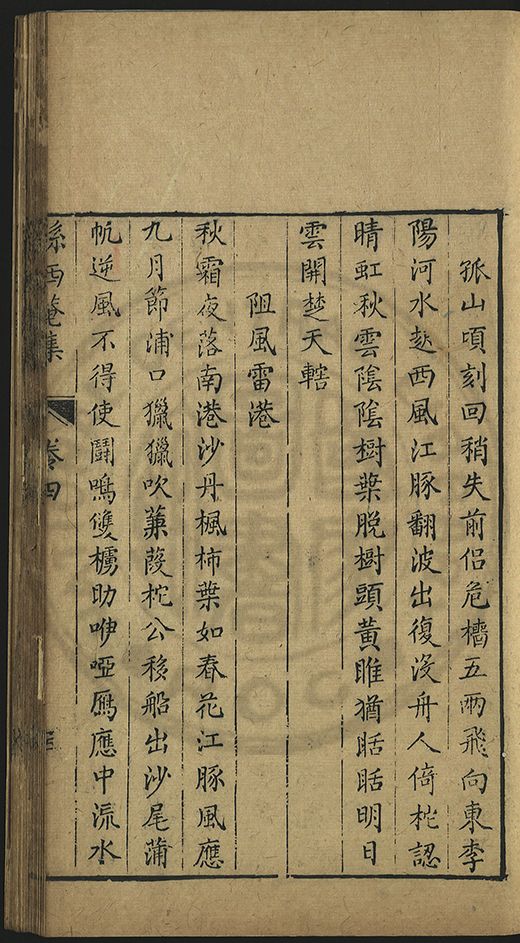 孤山頃刻回稍失前侣危樯五兩飛向東李
陽河水趂西風江豚翻波出復没舟人倚柁認
晴虹秋雲陰陰樹葉脱樹頭黄睢猶聒聒明日
雲開楚天轄
阻風雷港
秋霜夜落南港沙丹楓柿葉如春花江豚風應
九月節浦口獵獵吹蒹葭柁公移船出沙尾蒲
帆逆風不得使鬪鳴雙櫓助咿啞鴈應中流水
孫西菴集 卷四